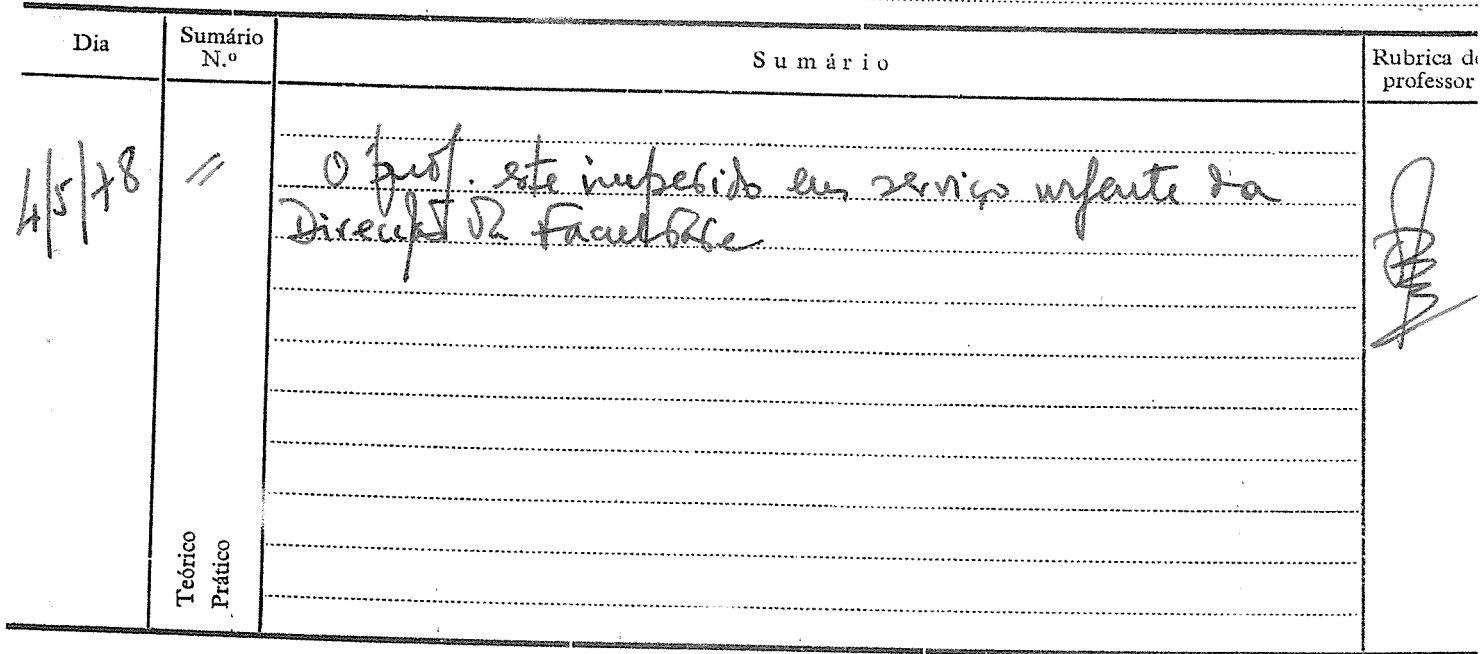 Dia
Sumário
N.º
Sumário
Rubrica do
professor
4/5/78
//
O prof. este impedido em serviço urgente da
Direcção da Faculdade
Teórico
Prático